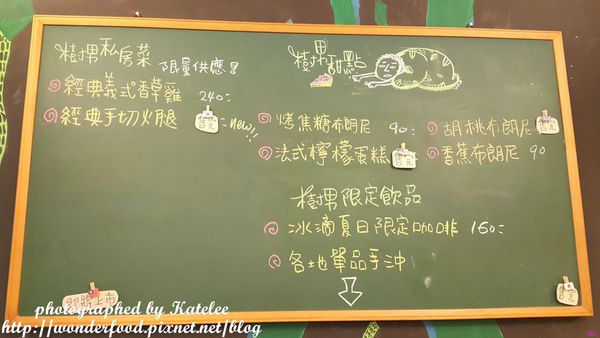 樹男私房菜 限量供應！
經典義式香草雞 240-
經典手切火腿 售完 new!!
樹男甜點
烤焦糖布朗尼 90-
法式檸檬蛋糕 售完
胡桃布朗尼 售完
香蕉布朗尼 90
樹男限定飲品
冰滴夏日限定咖啡 160-
各地單品手沖
即將上市
售完
photographed by Katelee
http://wonderfood.pixnet.net/blog